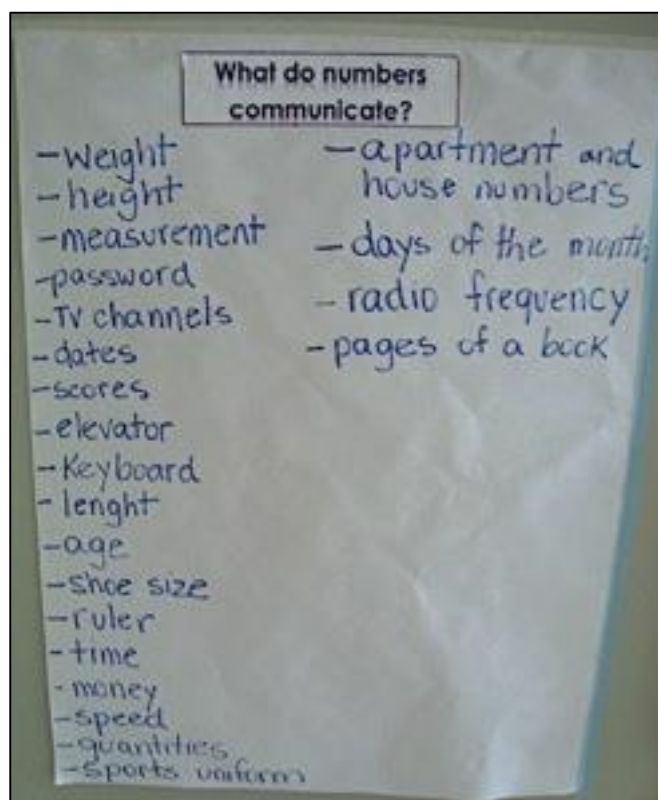 What do numbers
communicate?
-weight
-height
-measurement
-password
-TV channels
-dates
-scores
-elevator
-Keyboard
-lenght
-age
-shoe size
-ruler
-time
-money
-speed
-quantities
-sports uniform
-apartment and
house numbers
-days of the month
-radio frequency
-pages of a book